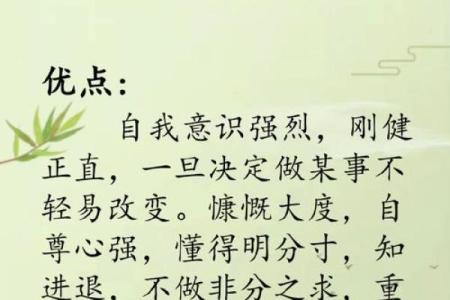 优点：
自我意识强烈，刚健
正直，一旦决定做某事不
轻易改变。慷慨大度，自
尊心强，懂得明分寸，知
进退，不做非分之求，重